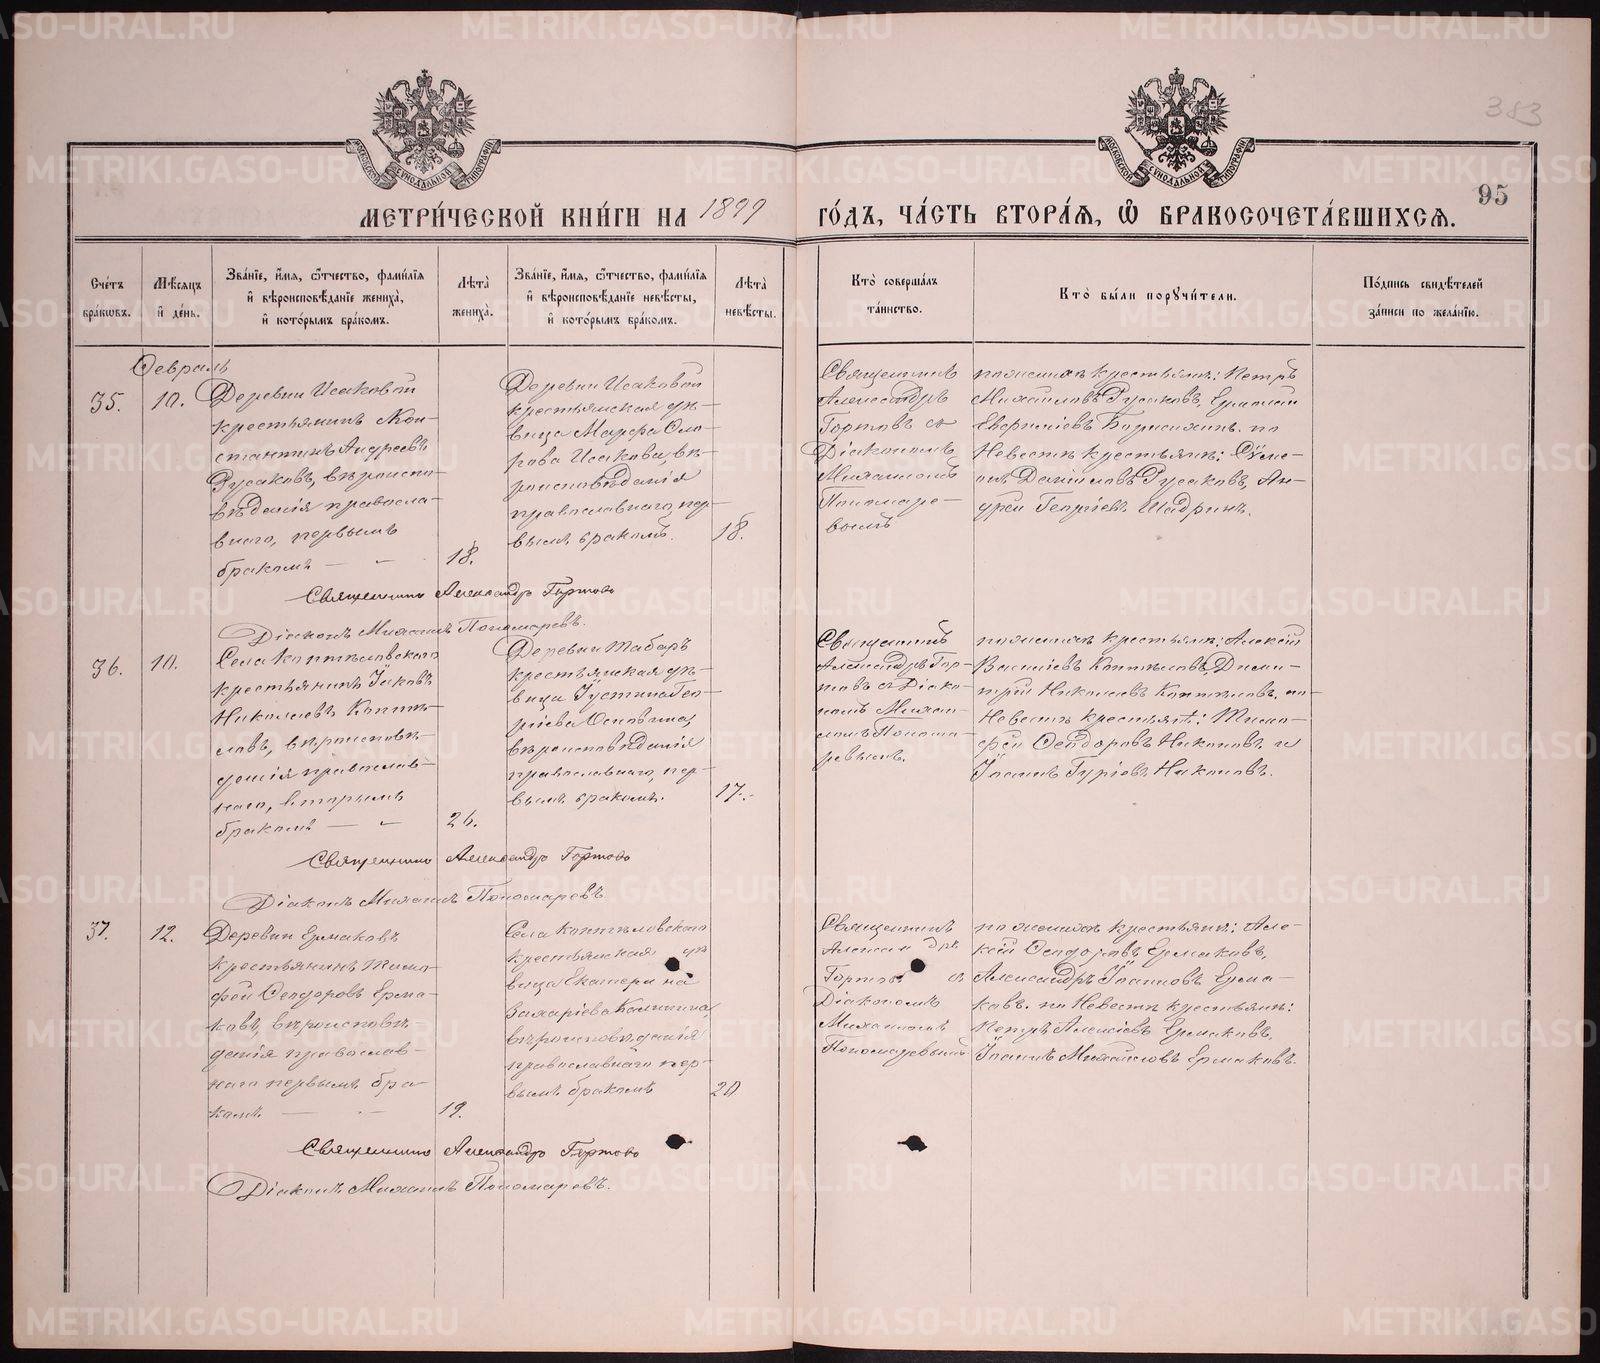 383
95
МОСКОВСКОЙ СѴНОДАЛЬНОЙ ТИПОГРАФІИ
МОСКОВСКОЙ СѴНОДАЛЬНОЙ ТИПОГРАФІИ
МЕТРИ́ЧЕСКОЙ КНИ́ГИ НА 1899 ГО́ДЪ, ЧА́СТЬ ВТОРА́Ѧ, Ѽ БРАКОСОЧЕТА́ВШИХСѦ.
Сче́тъ
бра́ковъ.
Мѣ́сяцъ
и҆ де́нь.
Зва́нїе, и҆́мѧ, ѻ҆́тчество, фами́лїѧ
и҆ вѣроисповѣ́данїе жениха̀,
и҆ кото́рымъ бра́комъ.
Лѣ́та
жениха̀.
Зва́нїе, и҆́мѧ, ѻ҆́тчество, фами́лїѧ
и҆ вѣроисповѣ́данїе невѣ́сты,
и҆ кото́рымъ бра́комъ.
Лѣ́та
невѣ́сты.
Кто̀ соверша́лъ
та́инство.
Кто̀ бы́ли поручи́тели.
По́дпись свидѣ́телей
за́писи по жела́нїю.
Февраль
35.
10.
Деревни Исаковой
крестьянинъ Кон-
стантинъ Андреевъ
Русаковъ, вѣроиспо-
вѣданія православ-
наго, первымъ
бракомъ — „
18.
Деревни Исаковой
крестьянская дѣ-
вица Марѳа
Исакова, вѣ-
роисповѣданія
православнаго, пер-
вымъ бракомъ.
18.
Священникъ
Александръ
Гортовъ съ
Діакономъ
Михаиломъ
Пономаре-
вымъ
по женихѣ крестьяне: Петръ
Михаиловъ Русаковъ, Ермолай
по
Невестѣ крестьяне:
Даніиловъ Русаковъ, Ан-
дрей Георгіевъ Шадринъ.
Священникъ Александръ Гортовъ
Діаконъ Михаилъ Пономаревъ.
36.
10.
Села Коптѣловскаго
крестьянинъ Іаковъ
Николаевъ Коптѣ-
ловъ, вѣроисповѣ-
данія православ-
наго, вторымъ
бракомъ — „
26.
Деревни Таборъ
крестьянская дѣ-
вица Іустина Геор-
гіева
вѣроисповѣданія
православнаго, пер-
вымъ бракомъ.
17.
Священникъ
Александръ Гор-
товъ съ Діако-
номъ Михаи-
ломъ Понома-
ревымъ.
по женихѣ крестьяне: Алексѣй
Василіевъ Коптѣловъ, Дими-
трій Николаевъ Коптѣловъ, по
Невестѣ крестьяне: Тимо-
фей Ѳеодоровъ Никоновъ и
Іоаннъ Гуріевъ Никоновъ.
Священникъ Александръ Гортовъ
Діаконъ Михаилъ Пономаревъ
37.
12.
Деревни Ермаковъ
крестьянинъ Тимо-
фей Ѳеодоровъ Ерма-
ковъ, вѣроисповѣ-
данія православ-
наго первымъ бра-
комъ —
19.
Села Коптѣловскаго
крестьянская дѣ-
вица Екатерина
Захаріева
вѣроисповѣданія
православнаго пер-
вымъ бракомъ
20
Священникъ
Александръ
Гортовъ съ
Діакономъ
Михаиломъ
Пономаревымъ
по женихѣ крестьяне: Але-
ксѣй Ѳеодоровъ Ермаковъ,
Александръ Іоанновъ Ерма-
ковъ. по Невестѣ крестьяне:
Петръ Алексіевъ Ермаковъ,
Іоаннъ Михаиловъ Ермаковъ.
Священникъ Александръ Гортовъ
Діаконъ Михаилъ Пономаревъ.
METRIKI.GASO-URAL.RU